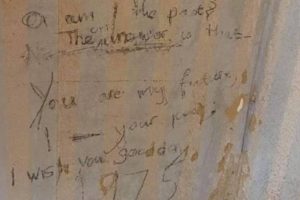 Or am I the past?
The answer is that
You are my future,
I your past.
I wish you goodday
1975